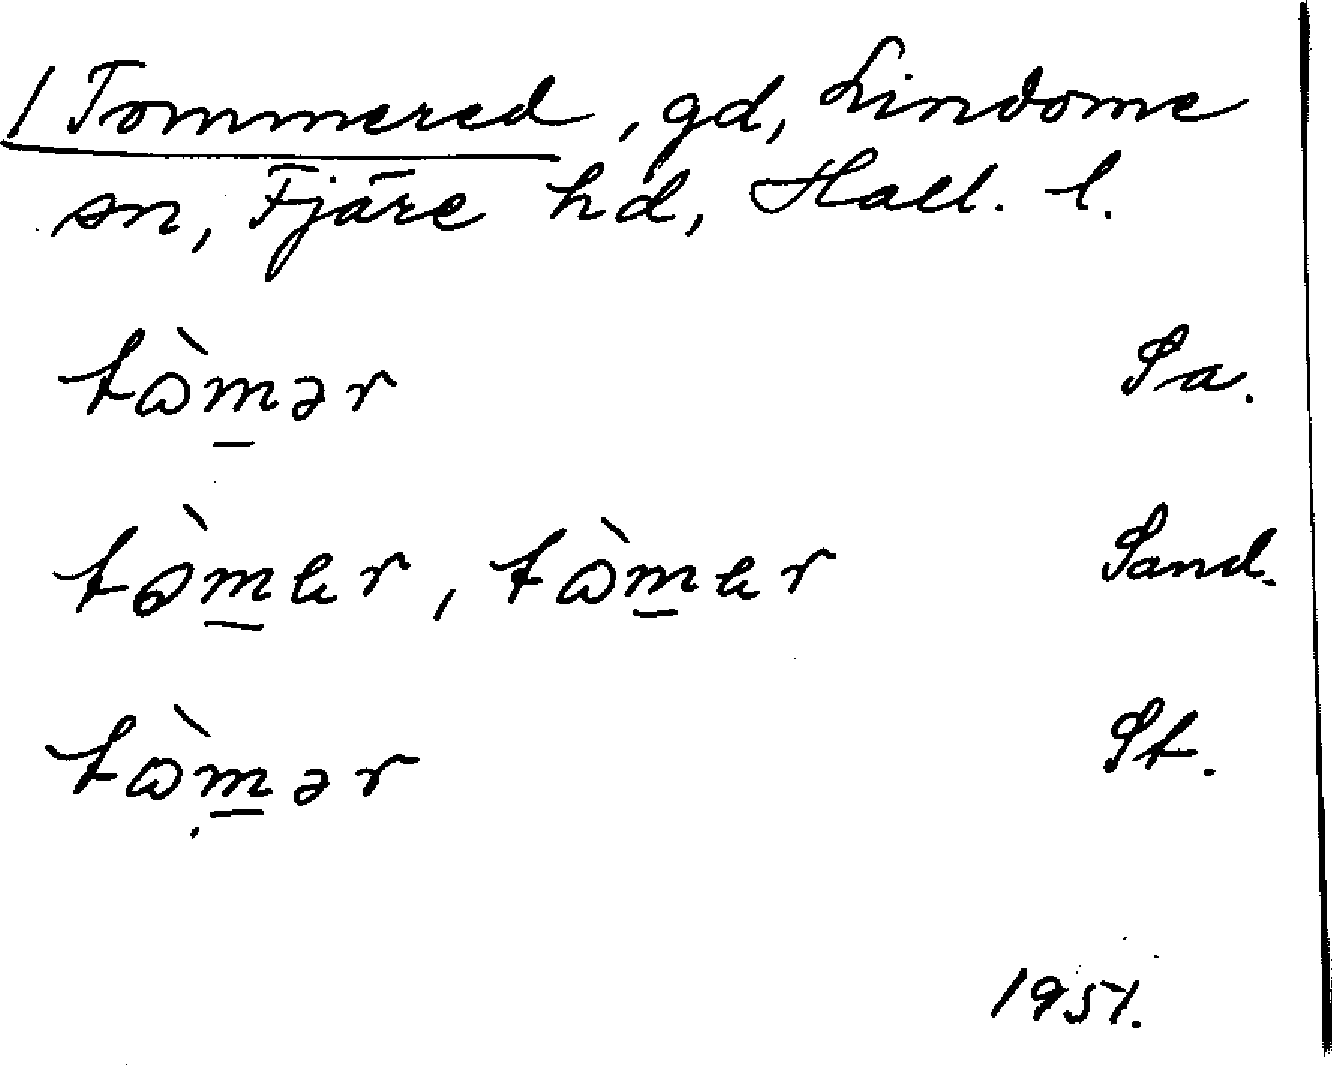 1 Tommered, gd, Lindome
sn, Fjäre hd, Hall. l.
tὼm̲ər Sa.
tò̲m̲ɛr, tὼm̲ɛr Sand.
tὼm̲ər St.
1951.